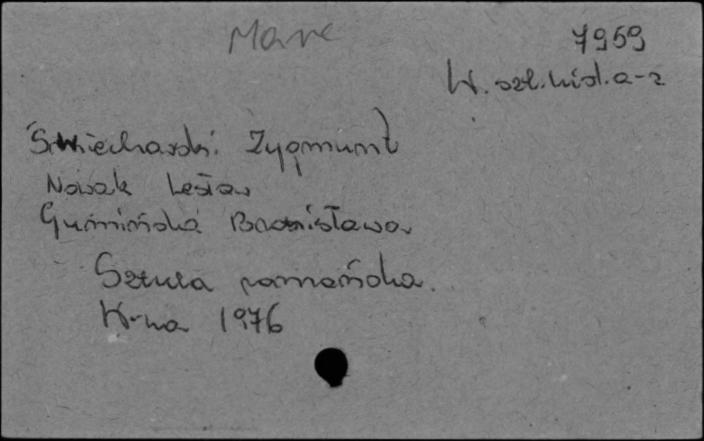 Marc
7959
W. szt. wid. a-z
Świechowski Zygmunt
Nowak Lesław
Gumińska Bronisława
Sztuka romańska.
W-wa 1976